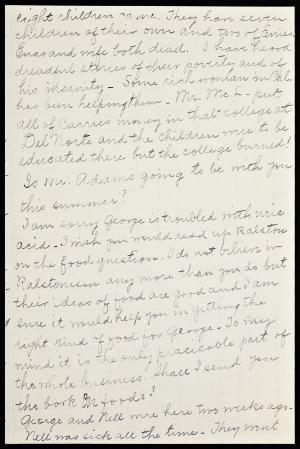 eight children or nine. They had seven
children of their own and two of Enies.
Enas and wife both dead. I have heard
dreadful stories of their poverty and of
his insanity - Some rich woman in Pal.
has been helping them - Mr. Mc I - put
all of Carrie's money in that college at
Del Norte and the children were to be
educated there but the college burned!
Is Mr. Adams going to be with you
this summer?
I am sorry George is troubled with uric
acid - I wish you would read up Ralston
on the food question. I do not believe in
Ralstonism any more than you do but
their ideas of food are good and I am
sure it would help you in getting the
right kind of food for George - To my
mind it is the only practicable part of
the whole business. Shall I send you
the book on foods?
George and Nell were here two weeks ago -
Nell was sick all the time - They went